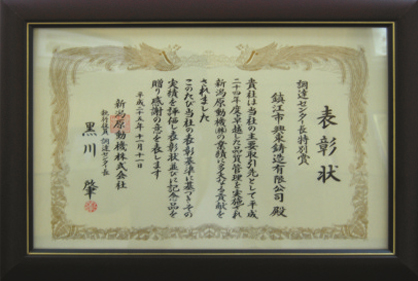 表彰状
調達センター長特別賞
鎮江市 興東鋳造有限公司 殿
貴社は当社の主要取引先として平成
二十四年度卓越した品質管理を実施され
新潟原動機㈱の業績に多大なる貢献を
されました
このたび当社の表彰基準に基づきその
実績を評価し表彰状並びに記念品を
贈り感謝の意を表します
平成二十五年十一月十一日
新潟原動機株式会社
執行役員 調達センター長
黒川 肇